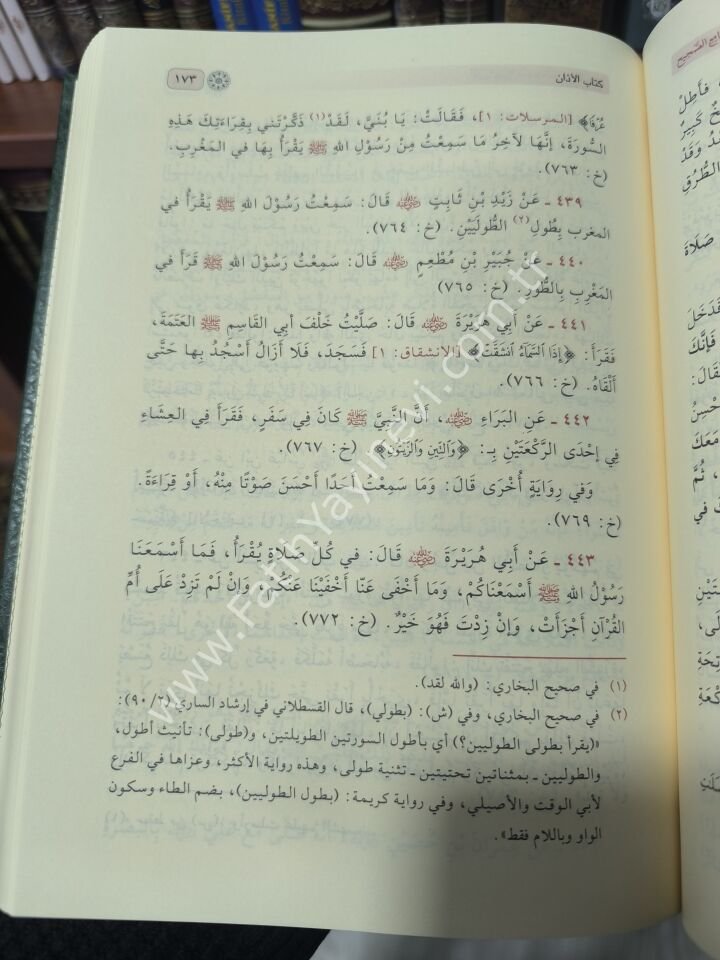 كتاب الأذان
١٧٣
عُرْفًا﴾ [المرسلات: ١]، فَقَالَتْ: يَا بُنَيَّ، لَقَدْ(١) ذَكَّرْتَنِي بِقِرَاءَتِكَ هَذِهِ
السُّورَةَ، إِنَّهَا لَآخِرُ مَا سَمِعْتُ مِنْ رَسُولِ اللهِ ﷺ يَقْرَأُ بِهَا فِي المَغْرِبِ.
(خ: ٧٦٣).
٤٣٩ ـ عَنْ زَيْدِ بْنِ ثَابِتٍ ﵁ قَالَ: سَمِعْتُ رَسُولَ اللهِ ﷺ يَقْرَأُ في
المغرب بِطُولِ(٢) الطُّولَيَيْنِ. (خ: ٧٦٤).
٤٤٠ ـ عَنْ جُبَيْرِ بْنِ مُطْعِمٍ ﵁ قَالَ: سَمِعْتُ رَسُولَ اللهِ ﷺ قَرَأَ في
المَغْرِبِ بِالطُّورِ. (خ: ٧٦٥)
٤٤١ ـ عَنْ أَبِي هُرَيْرَةَ ﵁ قَالَ: صَلَّيْتُ خَلْفَ أَبِي القَاسِمِ ﷺ العَتَمَةَ،
فَقَرَأَ: ﴿إِذَا السَّمَاءُ انْشَقَّتْ﴾ [الانشقاق: ١] فَسَجَدَ، فَلَا أَزَالُ أَسْجُدُ بِهَا حَتَّى
أَلْقَاهُ. (خ: ٧٦٦).
٤٤٢ ـ عَنِ البَرَاءِ ﵁، أَنَّ النَّبِيَّ ﷺ كَانَ فِي سَفَرٍ، فَقَرَأَ فِي العِشَاءِ
فِي إِحْدَى الرَّكْعَتَيْنِ بِـ: ﴿وَالتِّينِ وَالزَّيْتُونِ﴾. (خ: ٧٦٧).
وَفِي رِوَايَةٍ أُخْرَى قَالَ: وَمَا سَمِعْتُ أَحَدًا أَحْسَنَ صَوْتًا مِنْهُ، أَوْ قِرَاءَةً.
(خ: ٧٦٩).
٤٤٣ ـ عَنْ أَبِي هُرَيْرَةَ ﵁ قَالَ: في كُلِّ صَلَاةٍ يُقْرَأُ، فَمَا أَسْمَعَنَا
رَسُولُ اللهِ ﷺ أَسْمَعْنَاكُمْ، وَمَا أَخْفَى عَنَّا أَخْفَيْنَا عَنْكُمْ، وَإِنْ لَمْ تَزِدْ عَلَى أُمِّ
القُرْآنِ أَجْزَأَتْ، وَإِنْ زِدْتَ فَهُوَ خَيْرٌ. (خ: ٧٧٢).
(١) في صحيح البخاري: (والله لقد).
(٢) في صحيح البخاري، وفي (ش): (بطولي)، قال القسطلاني في إرشاد الساري (٩٠/٢):
«(يقرأ بطولى الطوليين؟) أي بأطول السورتين الطويلتين، و(طولى): تأنيث أطول،
والطوليين ـ بمثناتين تحتيتين ـ تثنية طولى، وهذه رواية الأكثر، وعزاها في الفرع
لأبي الوقت والأصيلي، وفي رواية كريمة: (بطول الطوليين)، بضم الطاء وسكون
الواو وباللام فقط».
www.FatihYayinevi.com.tr